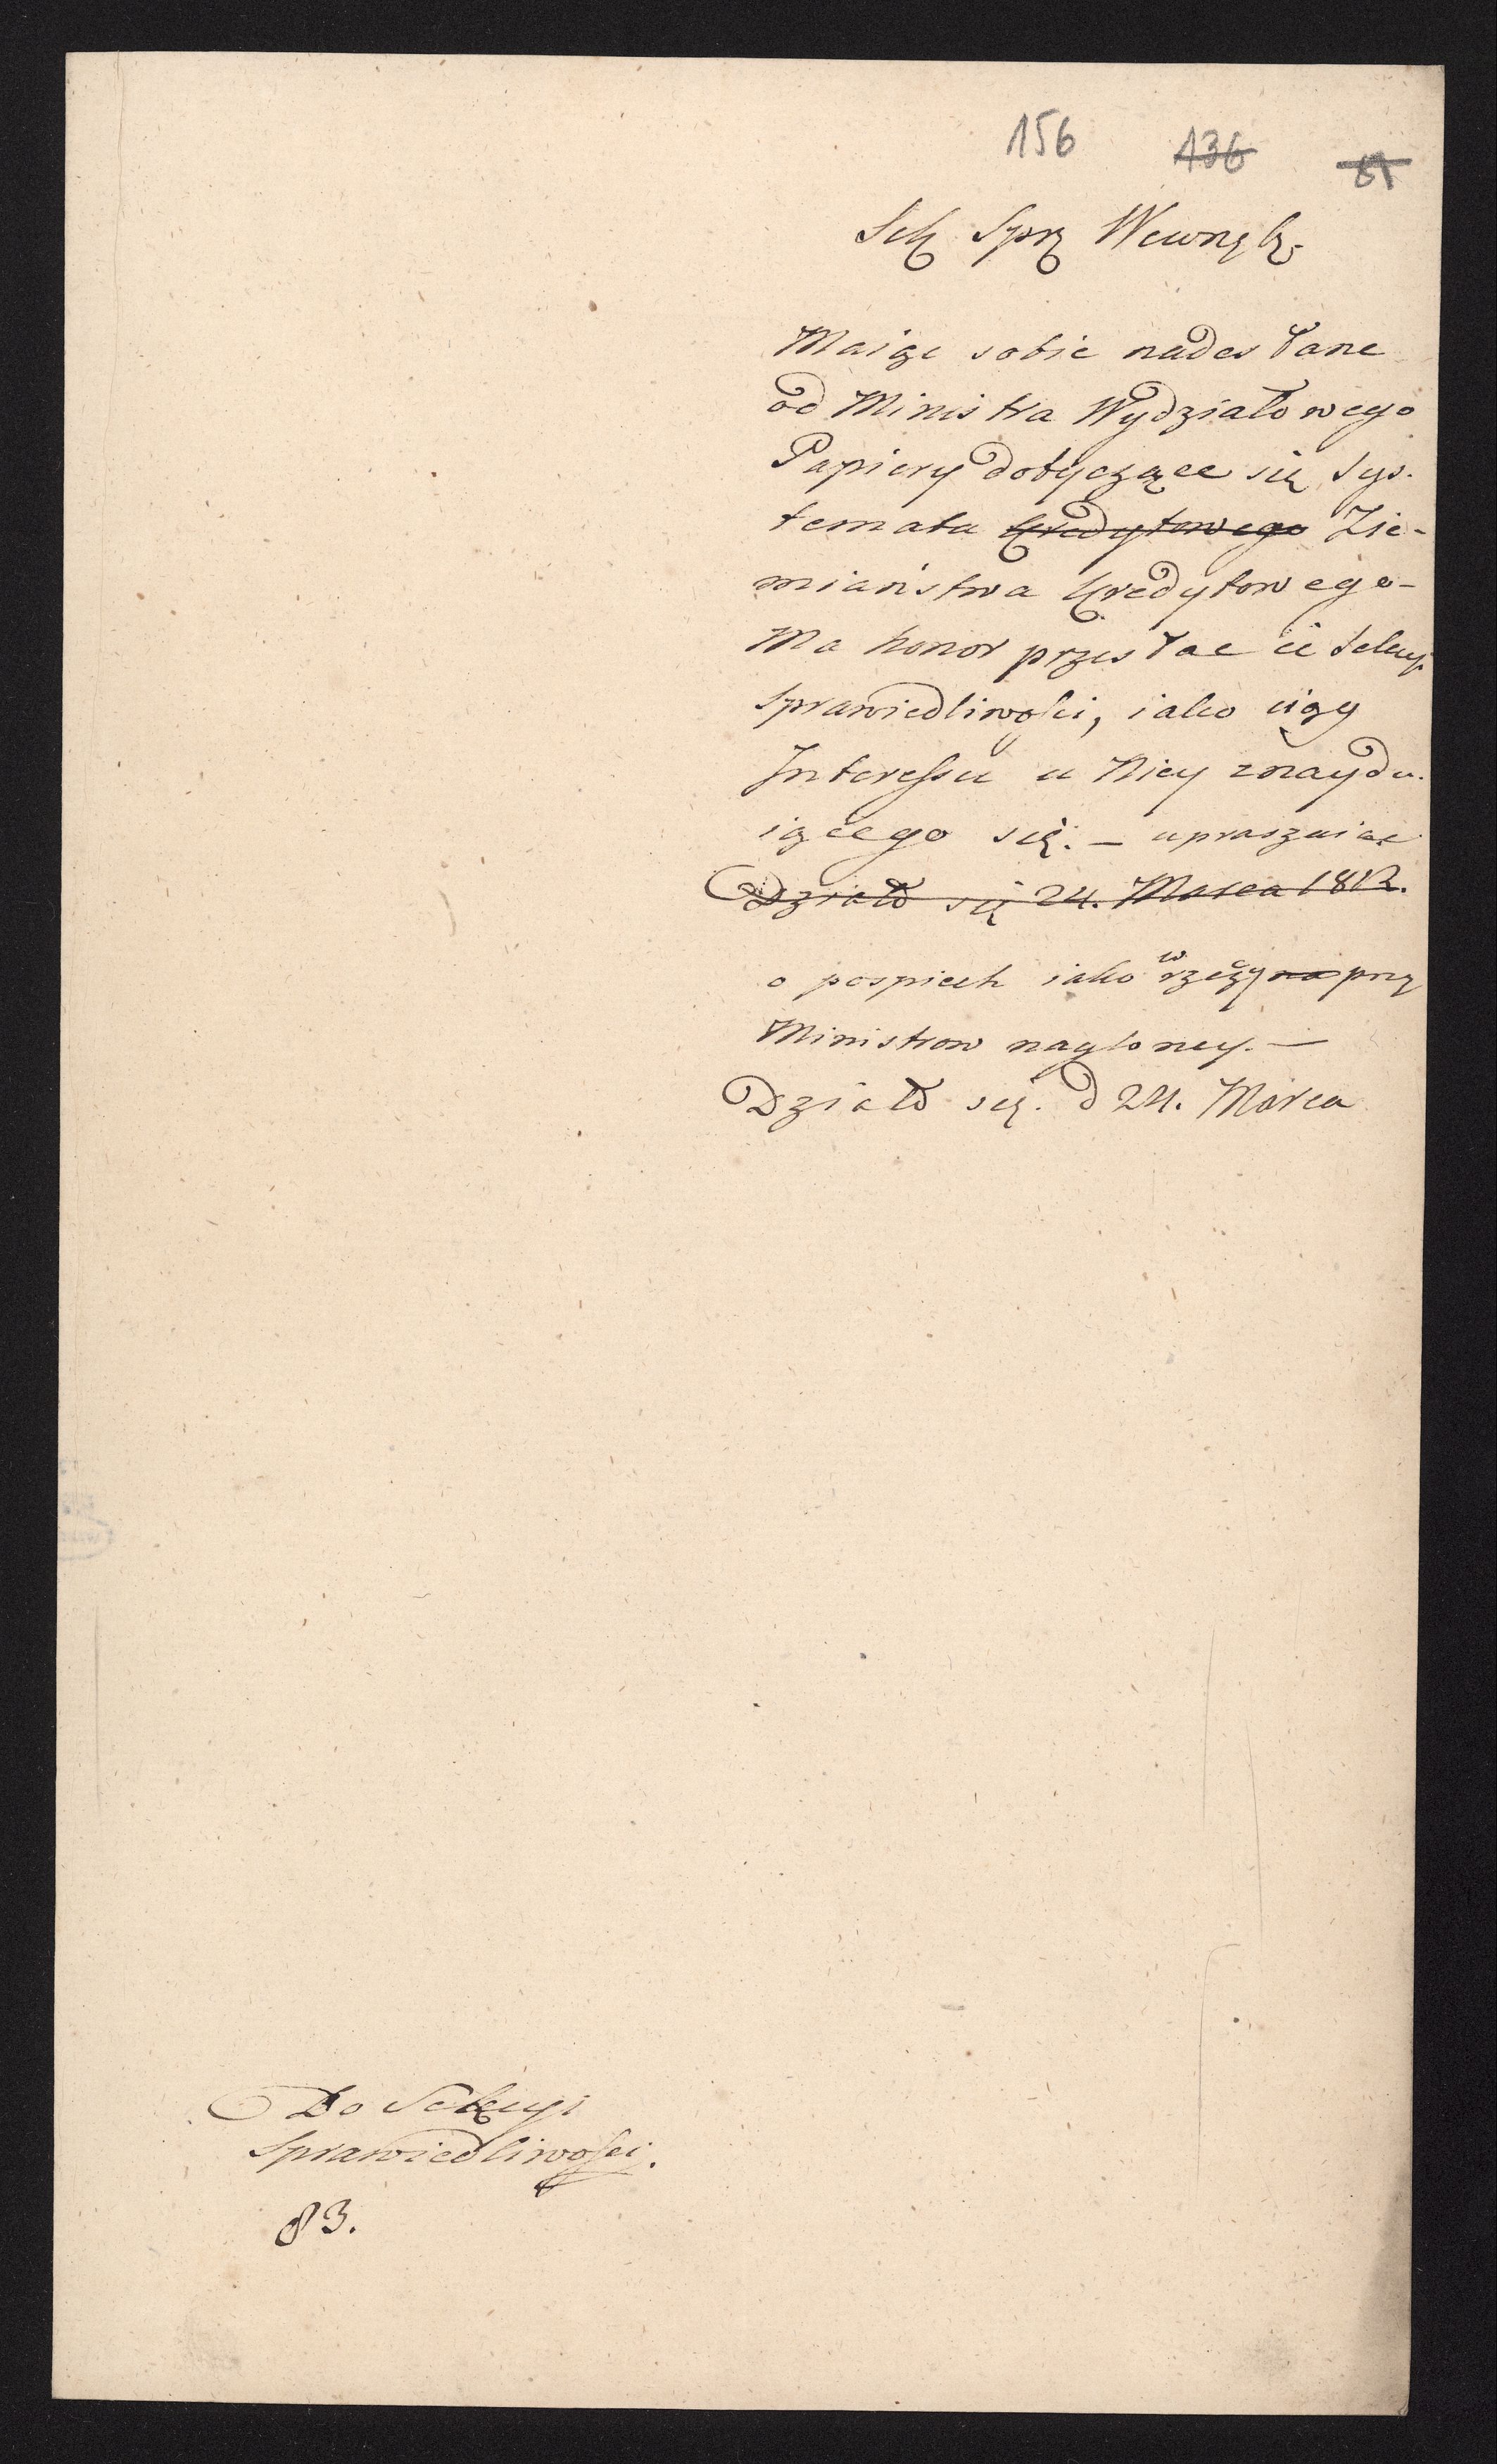 156 136 61
Sek Sprz Wewnętz.
Maiąc sobie nadesłane
od Ministra Wydziałowego
Papiery dotyczące się Sys-
temata Kredytowego Zie-
miaństwa Kredytowego -
Ma honor przesłac ie Sekcyi
Sprawiedliwości, iako
Interessu u Niey znaydu-
iącego się. - upraszaiąc
Działo się 24. Marca 1812.
o pospiech iako w rzeczy przez
Ministrow nagloney. -
Działo się. d 24. Marca
Do Sekcyi
Sprawiedliwości.
83.